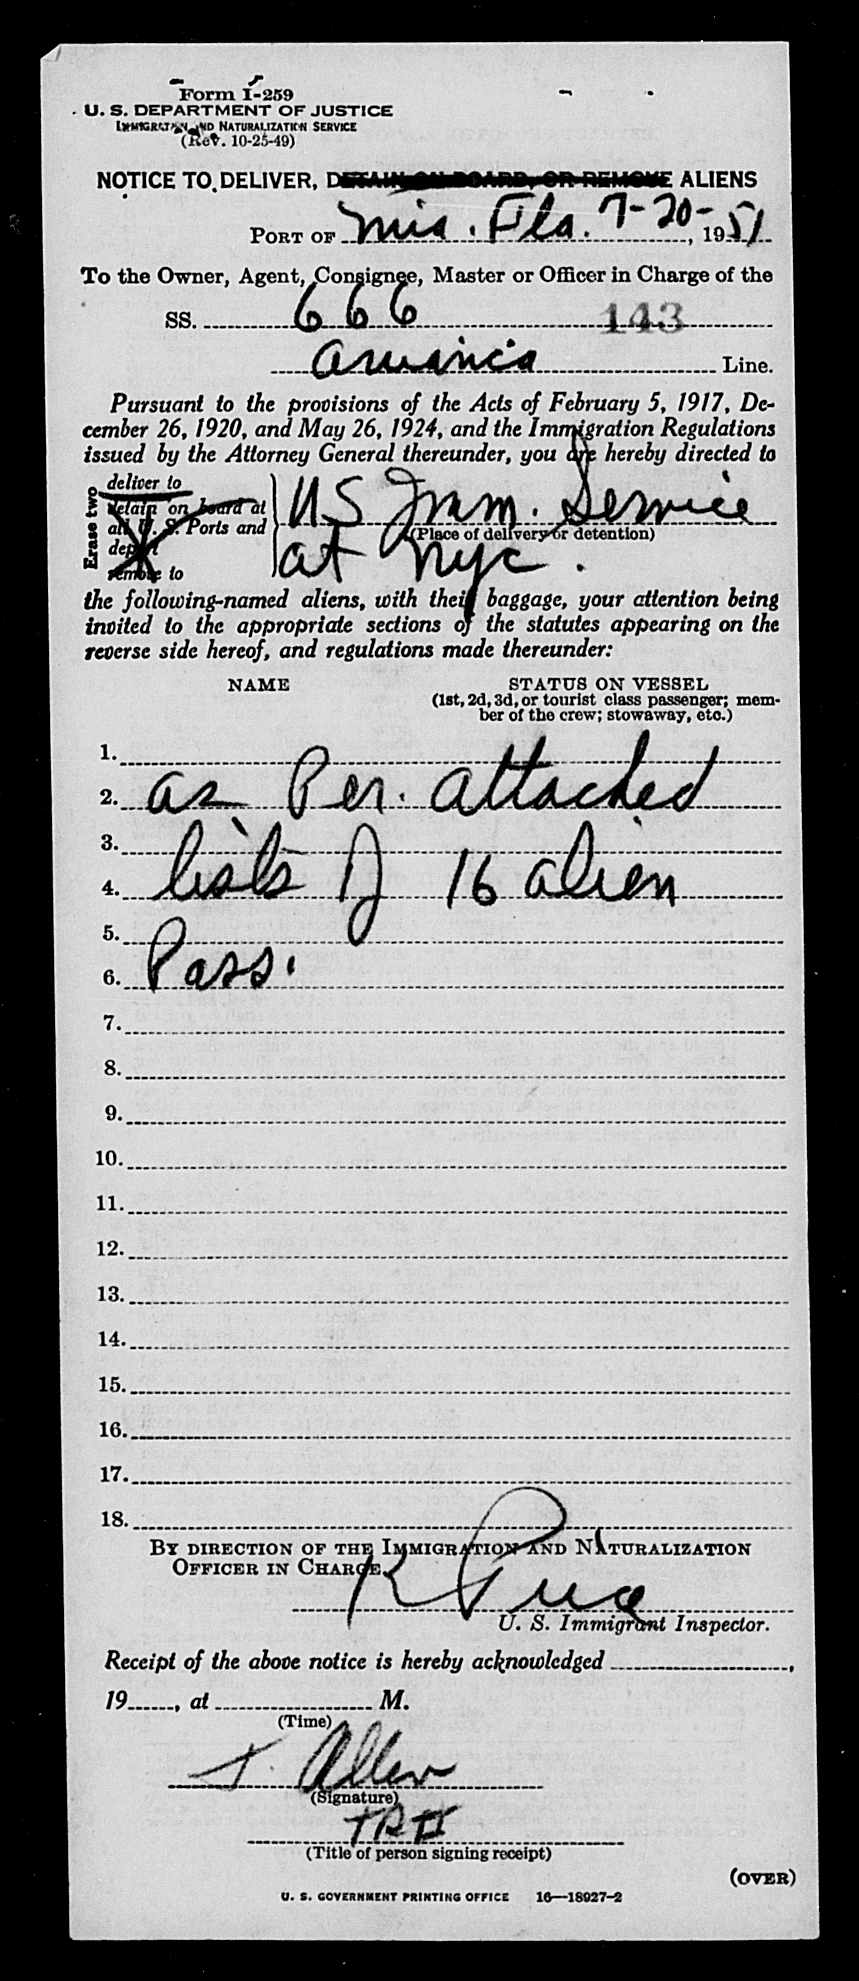 Form I-259
U. S. DEPARTMENT OF JUSTICE
IMMIGRATION AND NATURALIZATION SERVICE
(Rev. 10-25-49)
NOTICE TO DELIVER, DETAIN ON BOARD, OR REMOVE ALIENS
PORT OF Mia. Fla. 7-20-, 1951
To the Owner, Agent, Consignee, Master or Officer in Charge of the
SS. 666 143
Line.
Pursuant to the provisions of the Acts of February 5, 1917, De-
cember 26, 1920, and May 26, 1924, and the Immigration Regulations
issued by the Attorney General thereunder, you are hereby directed to
Erase two
deliver to
detain on board at
all U. S. Ports and
deport
remove to
US Imm. Service
(Place of delivery or detention)
at NYC.
the following-named aliens, with their baggage, your attention being
invited to the appropriate sections of the statutes appearing on the
reverse side hereof, and regulations made thereunder:
NAME STATUS ON VESSEL
(1st, 2d, 3d, or tourist class passenger; mem-
ber of the crew; stowaway, etc.)
1.
2. as Per. attached
3.
4. lists of 16 alien
5.
6. Pass.
7.
8.
9.
10.
11.
12.
13.
14.
15.
16.
17.
18.
BY DIRECTION OF THE IMMIGRATION AND NATURALIZATION
OFFICER IN CHARGE
K
U. S. Immigrant Inspector.
Receipt of the above notice is hereby acknowledged ,
19 , at M.
(Time)
T. Allen
(Signature)
(Title of person signing receipt)
(OVER)
U. S. GOVERNMENT PRINTING OFFICE 16—18927-2